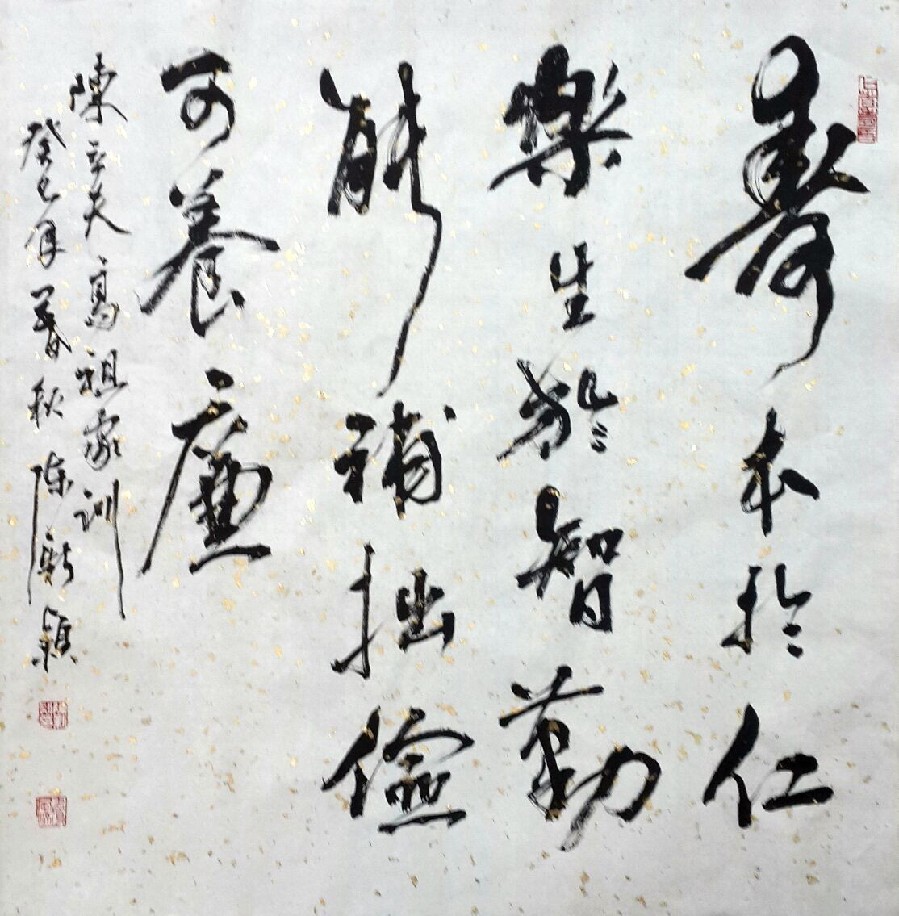 壽本於仁
樂生於智勤
能補拙儉
可養廉
陳立夫高祖家訓
癸巳年暮秋陈新颖